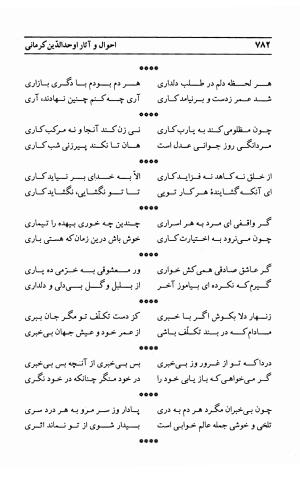 ۷۸۲ احوال و آثار اوحدالدّین کرمانی
****
هر لحظه دلم در طلب دلداری هر دم بودم با دگری بازاری
شد عمر زدست و برنیامد کاری آری چه کنم چنین نهادند، آری
****
چون مظلومی کند به یارب کاری نی زن کند آنجا و نه مرکب کاری
مردانگی روز جوانی عدل است هان تا نکند پیرزنی شب کاری
****
از خلق نه کاهد نه فزاید کاری الاّ به خدای بر نیاید کاری
ای آنکه گشایندهٔ هر کار تویی تا تو نگشایی، نگشاید کاری
****
گر واقفی ای مرد به هر اسراری چندین چه خوری بیهده را تیماری
چون می‌نرود به اختیارت کاری خوش باش درین زمان که هستی باری
****
گر عاشق صادقی همی‌کش خواری ور معشوقی به خرّمی ده یاری
گیرم که نکرده ای بیاموز آخر از بلبل و گل بی‌دلی و دلداری
****
زنهار دلا بکوش اگر با خبری کز دست تکلّف تو مگر جان ببری
مادام که در بند تکلّف باشی از عمر خود و عیش جهان بی‌خبری
****
دردا که تو از غرور وز بی‌خبری بس بی‌خبری از آنچه بس بی‌خبری
گر می‌خواهی که باز یابی خود را در خود منگر چنانکه در خود نگری
****
چون بی‌خبران مگرد هر دم به دری پادار وز سر مرو به هر درد سری
تلخی و خوشی جمله عالم خوابی است بیدار شوی از تو نماند اثری
****